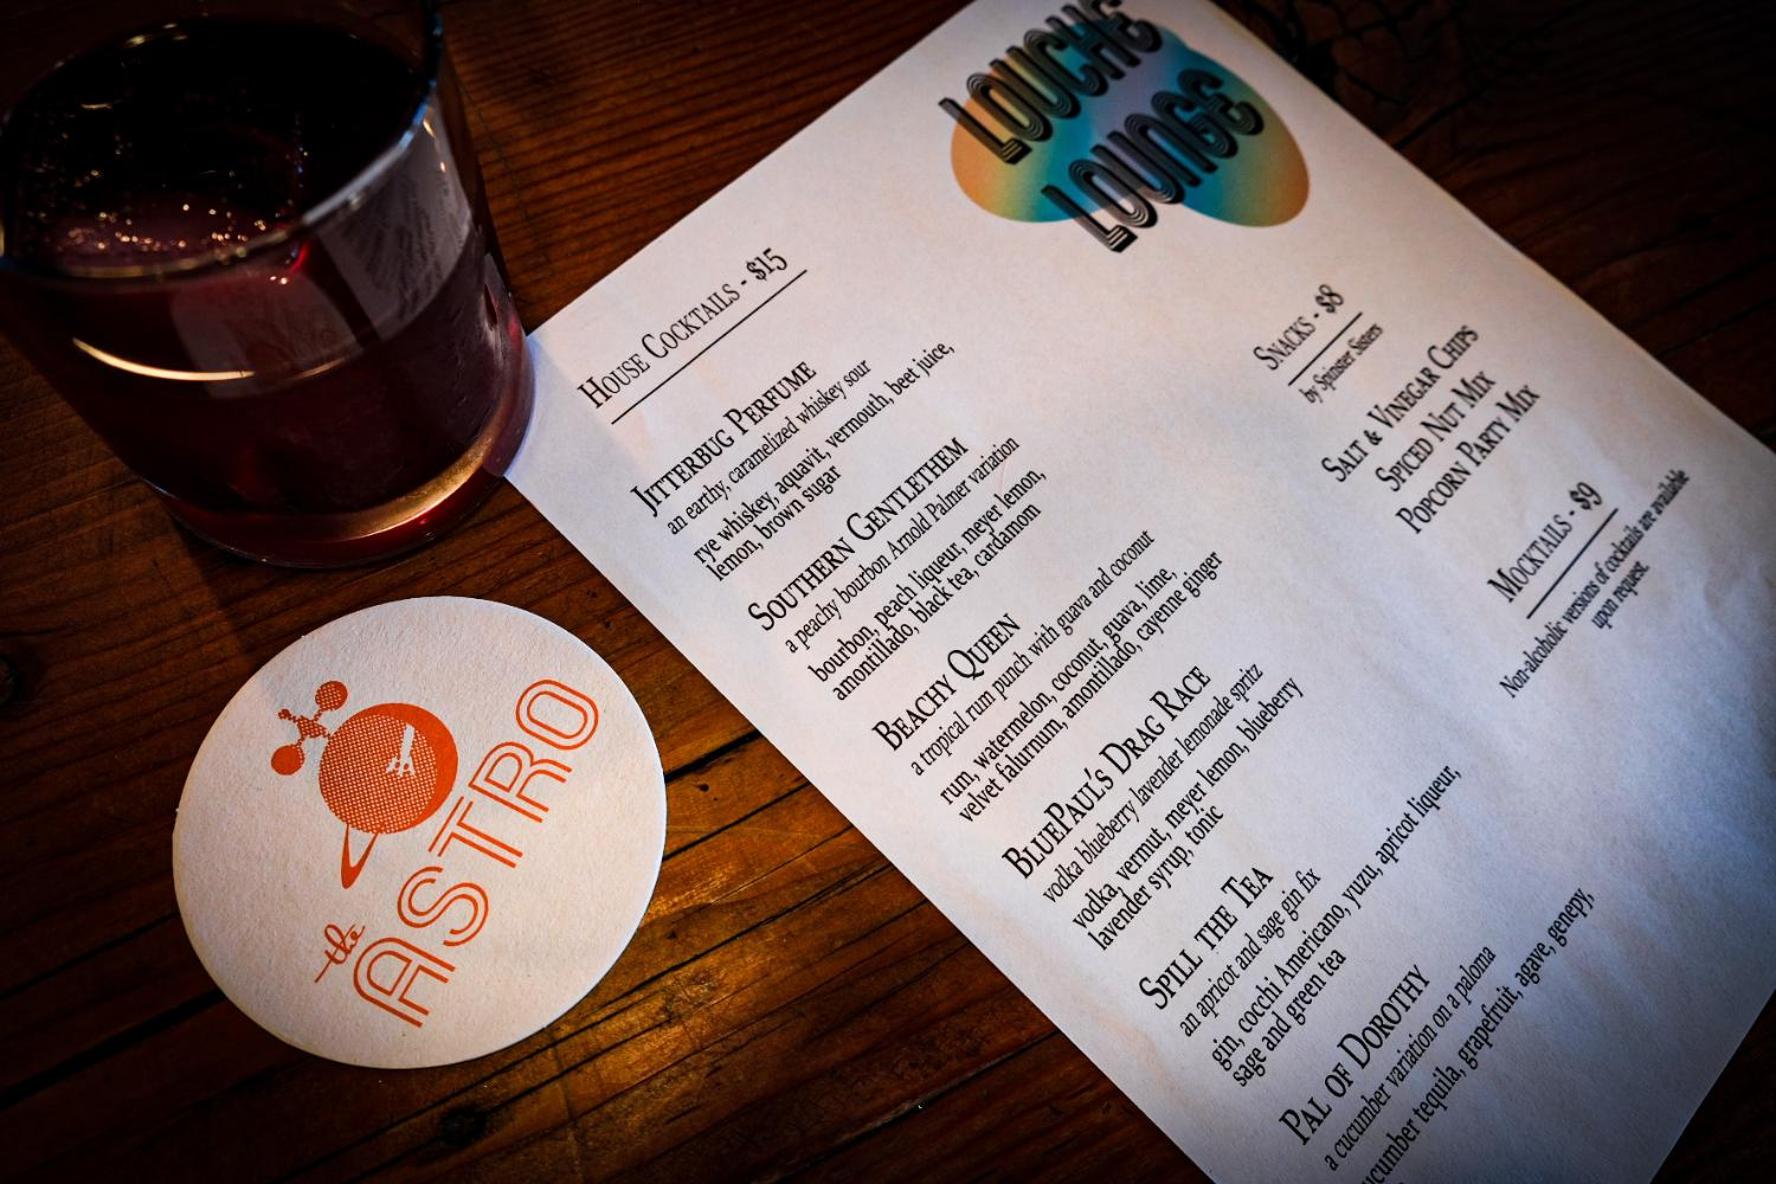 LOUCHE
LOUNGE
HOUSE COCKTAILS - $15
JITTERBUG PERFUME
an earthy, caramelized whiskey sour
rye whiskey, aquavit, vermouth, beet juice,
lemon, brown sugar
SOUTHERN GENTLETHEM
a peachy bourbon Arnold Palmer variation
bourbon, peach liqueur, meyer lemon,
amontillado, black tea, cardamom
BEACHY QUEEN
a tropical rum punch with guava and coconut
rum, watermelon, coconut, guava, lime,
velvet falurnum, amontillado, cayenne ginger
BLUEPAUL'S DRAG RACE
vodka blueberry lavender lemonade spritz
vodka, vermut, meyer lemon, blueberry
lavender syrup, tonic
SPILL THE TEA
an apricot and sage gin fix
gin, cocchi Americano, yuzu, apricot liqueur,
sage and green tea
PAL OF DOROTHY
a cucumber variation on a paloma
cucumber tequila, grapefruit, agave, genepy,
SNACKS - $8
by Spinster Sisters
SALT & VINEGAR CHIPS
SPICED NUT MIX
POPCORN PARTY MIX
MOCKTAILS - $9
Non-alcoholic versions of cocktails are available
upon request.
the
ASTRO